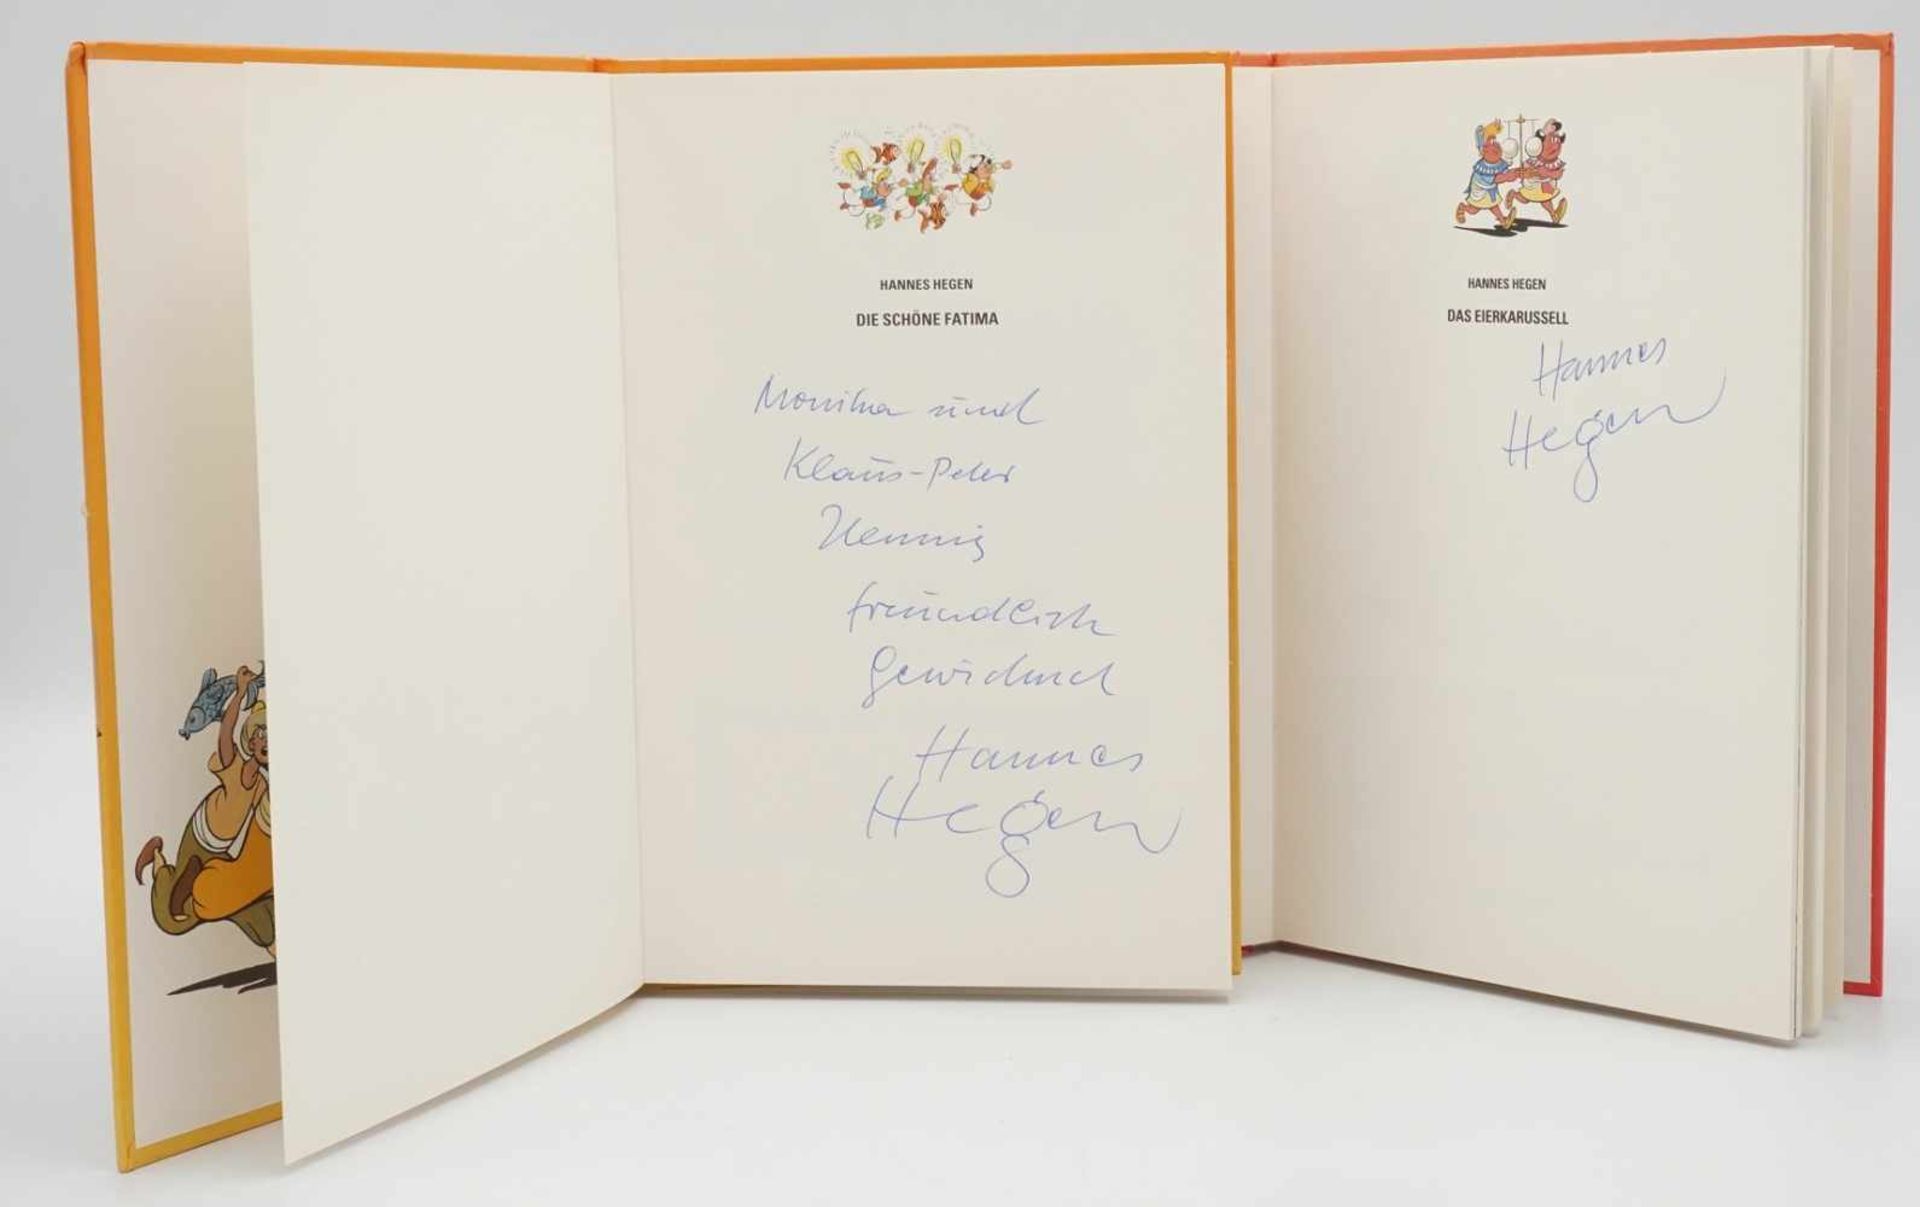 HANNES HEGEN
DIE SCHÖNE FATIMA
Monika und
Klaus-Peter
Hennig
freundlich
gewidmet
Hannes
Hegen
HANNES HEGEN
DAS EIERKARUSSELL
Hannes
Hegen